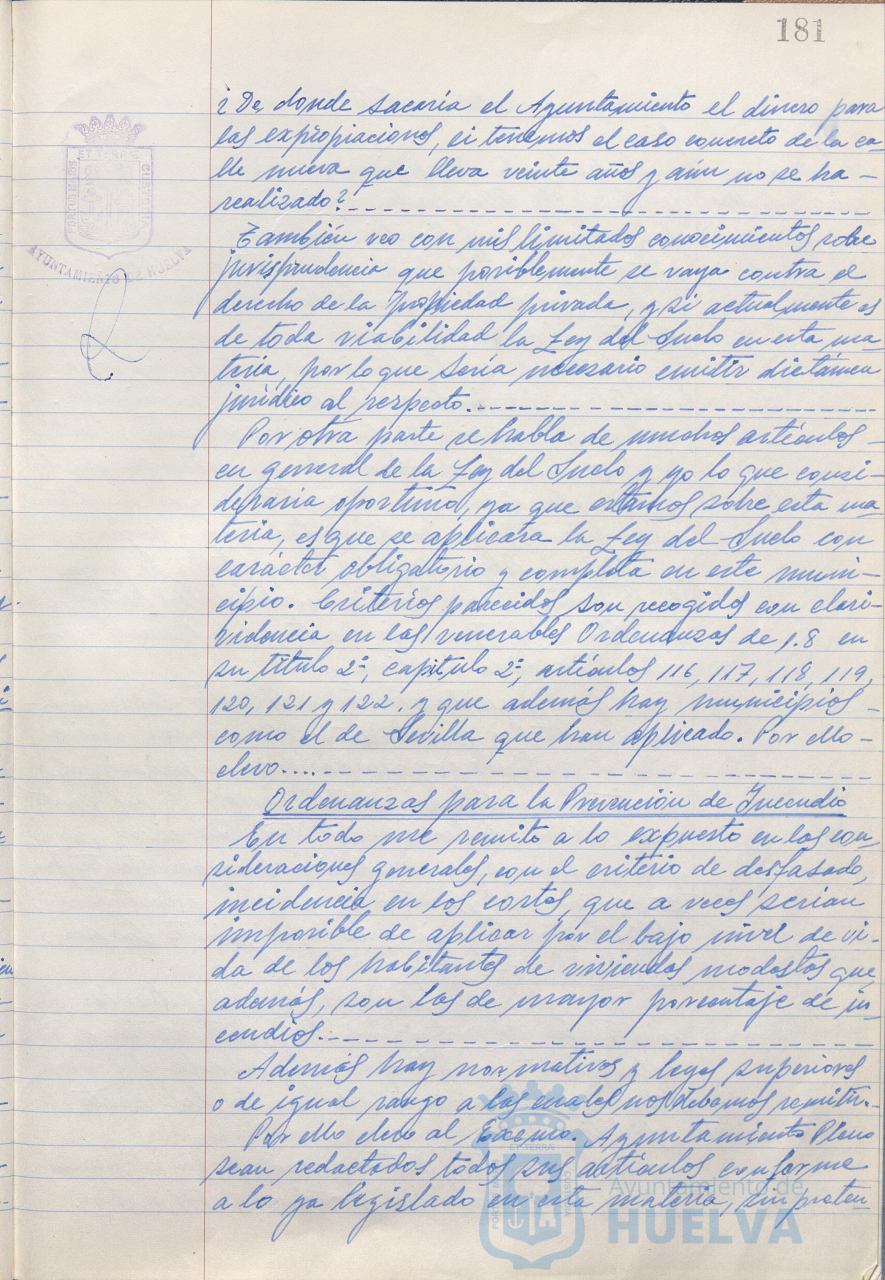 181
¿De donde sacaría el Ayuntamiento el dinero para
las expropiaciones, si tenemos el caso concreto de la ca-
lle nueva que lleva veinte años y aún no se ha -
realizado?
También veo con mis limitados conocimientos sobre
jurisprudencia que posiblemente se vaya contra el
derecho de la propiedad privada, y si actualmente es
de toda viabilidad la Ley del Suelo en esta ma-
teria, por lo que sería necesario emitir dictámen
jurídico al respecto.
Por otra parte se habla de muchos artículos -
en general de la Ley del Suelo y yo lo que consi-
deraria oportuno, ya que estamos sobre esta ma-
teria, es que se aplicara la Ley del Suelo con
carácter obligatorio y completa en este muni-
cipio. Criterios parecidos son recogidos con clari-
videncia en las venerables Ordenanzas de 1.8 en
su título 2º, capítulo 2º, artículos 116, 117, 118, 119,
120, 121 y 122. y que además hay municipios -
como el de Sevilla que han aplicado. Por ello -
elevo....
Ordenanzas para la Prevención de Incendio
En todo me remito a lo expuesto en las con-
sideraciones generales, con el criterio de desfasado,
incidencia en los costos, que a veces serian
imposible de aplicar por el bajo nivel de vi-
da de los habitantes de viviendas modestas que,
además, son las de mayor porcentaje de in-
cendios.
Además hay normativas y leyes superiores
o de igual rango a las cuales nos debamos remitir.
Por ello elevo al Excmo. Ayuntamiento Pleno
sean redactados todos sus artículos conforme
a lo ya legislado en esta materia, sin preten-
AYUNTAMIENTO DE HUELVA
PORTUS MARIS
ET TERRE
CUSTODIA
Ayuntamiento de
HUELVA